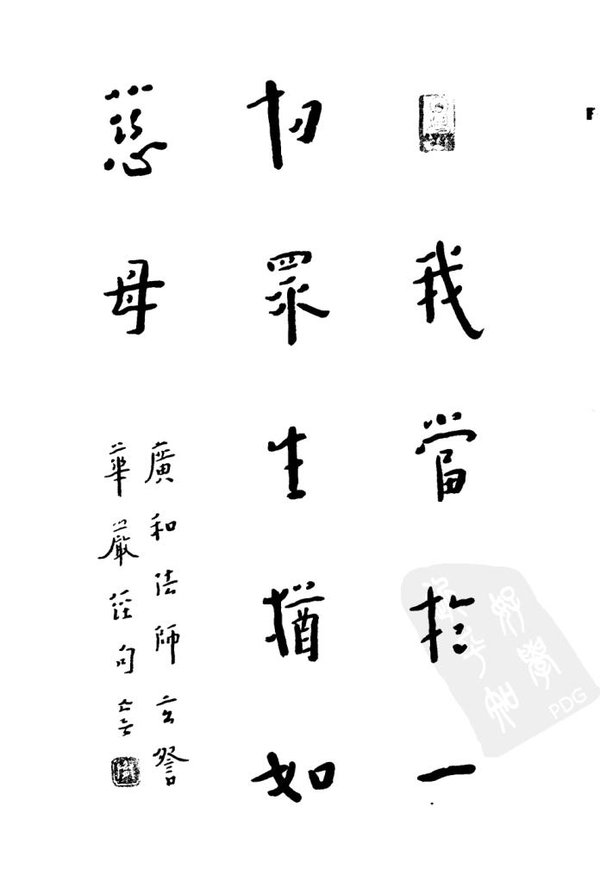 我當於一
切眾生猶如
慈母
廣和法師玄詧
華嚴經句亡言
好學
近乎知
PDG